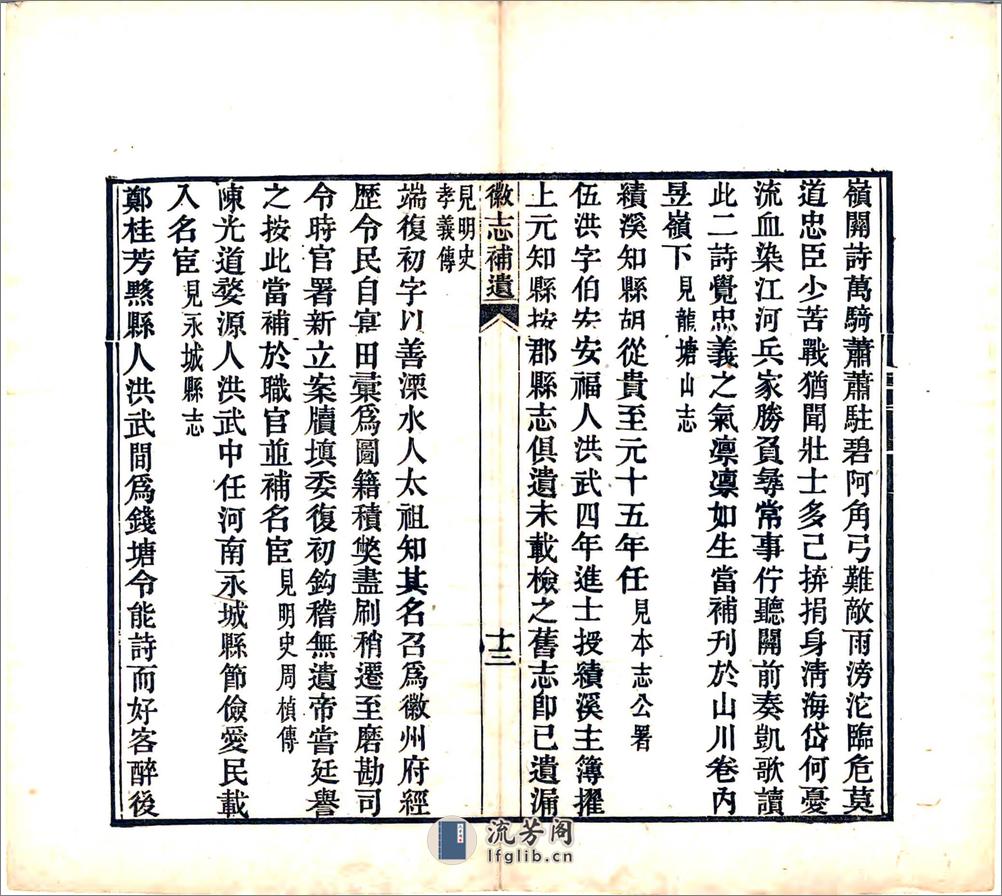 嶺關詩萬騎蕭蕭駐碧阿角弓難敵雨滂沱臨危莫
道忠臣少苦戰猶聞壯士多己拚捐身淸海岱何憂
流血染江河兵家勝負尋常事佇聽關前奏凱歌讀
此二詩覺忠義之氣凛凛如生當補刊於山川卷內
昱嶺下見龍塘山志
績溪知縣胡從貴至元十五年任見本志公署
伍洪字伯安安福人洪武四年進士授績溪主簿擢
上元知縣按郡縣志俱遺未載檢之舊志卽已遺漏
徽志補遺
十三
見明史
孝義傳
端復初字以善溧水人太祖知其名召爲徽州府經
歷令民自實田彙爲圖籍積獘盡刷稍遷至磨勘司
令時官署新立案牘塡委復初鈎稽無遺帝嘗廷譽
之按此當補於職官並補名宦見明史周楨傳
陳光道婺源人洪武中任河南永城縣節儉愛民載
入名宦見永城縣志
鄭桂芳黟縣人洪武間爲錢塘令能詩而好客醉後
流芳阁
lfglib.cn